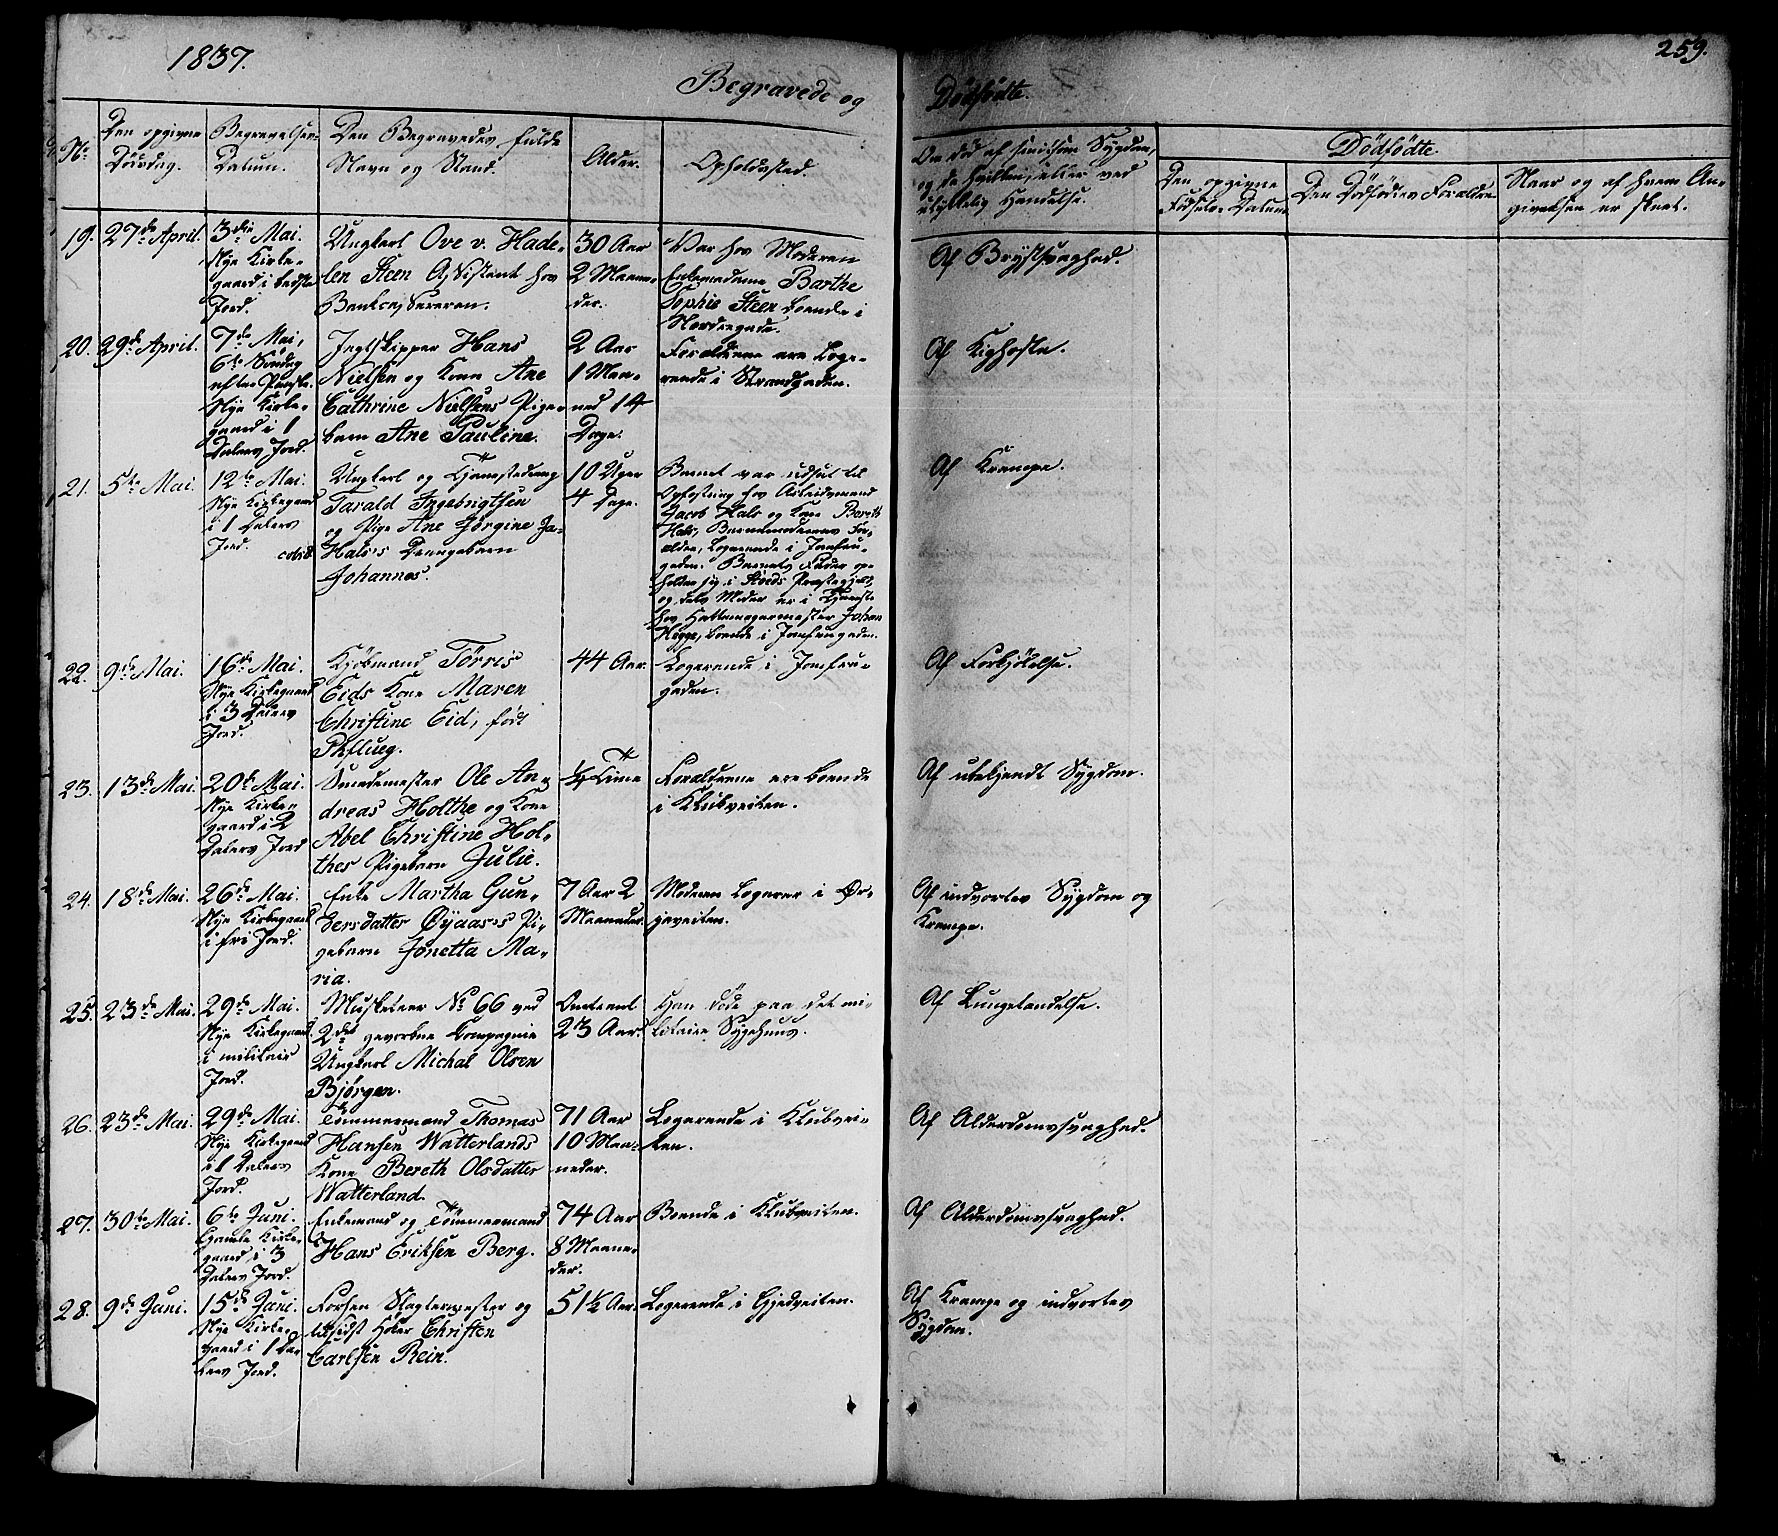 1837.
259.
Begravede og
Dödfödte.
No.
Den opgivne
Dödsdag.
Begravelsens
Datum.
Den Begravedes fulde
Navn og Stand.
Alder.
Opholdssted.
Om död af smitsom Sygdom,
og da hvilken, eller ved
ulykkelig Hendelse.
Dödfödte.
Den opgivne
Födsels-Datum
Den Dödfödtes Forældre
Naar og af hvem An-
givelsen er skeet.
19. 27de April.
3die Mai.
Nye Kirke-
gaard i bedste
Jord.
Ungkarl Ove v. Hade-
len Steen Assistent hos
Bankcasereren.
30 Aar
2 Maane-
der.
Var hos Moderen
Enkemadame Barthe
Sophie Steen boende i
Nordregade.
Af Brystsvaghed.
20. 29de April.
7de Mai,
6te Söndag
efter Paaske
Nye Kirke-
gaard i 1
Dalers Jord.
Jagtskipper Hans
Nielsen og Kone Ane
Cathrine Nielsens Pige-
barn Ane Pauline.
2 Aar
1 Maa-
ned 14
Dage.
Forældrene ere Loge-
rende i Strandgaden.
Af Kighoste.
21. 5te Mai.
12te Mai.
Nye Kirkegaard
i 1 Dalers
Jord.
Ungkarl og Tjenestedreng
Tarald Ingebrigtsen
og Pige Ane Jörgine Ja-
cobsd. Hals's Drengebarn
Johannes.
10 Uger
4 Dage.
Barnet var udsat til
Opfostring hos Arbeidsmand
Jacob Hals og Kone Bereth
Hals, Barnemoderens For-
ældre, Logerende i Jomfru-
gaden. Barnets Fader op-
holder sig i Störds Præstegjeld,
og dets Moder er i Tjeneste
hos Hattemagermester Johan
Hegge, boende i Jomfrugaden.
Af Krampe.
22. 9de Mai.
16de Mai.
Nye Kirkegaard
i 3 Dalers
Jord.
Kjöbmand Törris
Eids Kone Maren
Christine Eid, födt
Phflueg.
44 Aar.
Logerende i Jomfru-
gaden.
Af Forkjölelse.
23. 13de Mai.
20de Mai.
Nye Kirke-
gaard i 2
Dalers Jord
Smedemester Ole An-
dreas Holthe og Kone
Abel Christine Hol-
thes Pigebarn Julie.
1/4 Time
Forældrene ere boende
i Klubveiten.
Af ubekjendt Sygdom.
24. 18de Mai.
26de Mai.
Nye Kirkegaard
i fri Jord.
Enke Martha Gun-
dersdatter Öyaas's Pi-
gebarn Jonetta Ma-
ria.
7 Aar 2
Maaneder.
Moderen Logerer i Ør-
javeiten.
Af indvortes Sygdom og
Krampe.
25. 23de Mai.
29de Mai.
Nye Kirkegaard
i militair
Jord.
Musketeer No 66 ved
2det gevorbne Compagnie
Ungkarl Michal Olsen
Bjørgen.
Omtrent
23 Aar.
Han döde paa det mi-
litaire Sygehuus.
Af Lungebetændelse.
26. 23de Mai.
29de Mai.
Nye Kirkegaard
i 1 Dalers
Jord.
Tömmermand Thomas
Hansen Watterlands
Kone Bereth Olsdatter
Watterland.
71 Aar
10 Maa-
neder.
Logerende i Klubvei-
ten.
Af Alderdomssvaghed.
27. 30te Mai.
6te Juni.
Gamle Kirke-
gaard i 3
Dalers Jord.
Enkemand og Tömmermand
Hans Eriksen Berg.
74 Aar
8 Maane-
der.
Boende i Klubveiten.
Af Alderdomssvaghed.
28. 9de Juni.
15de Juni.
Nye Kirke-
gaard i 1 Da-
lers Jord.
Forhen Slagtermester og
tilsidst Höker Christen
Carlsen Rein.
51 1/2 Aar.
Logerende i Gjedveiten.
Af Krampe og indvortes
Sygdom.